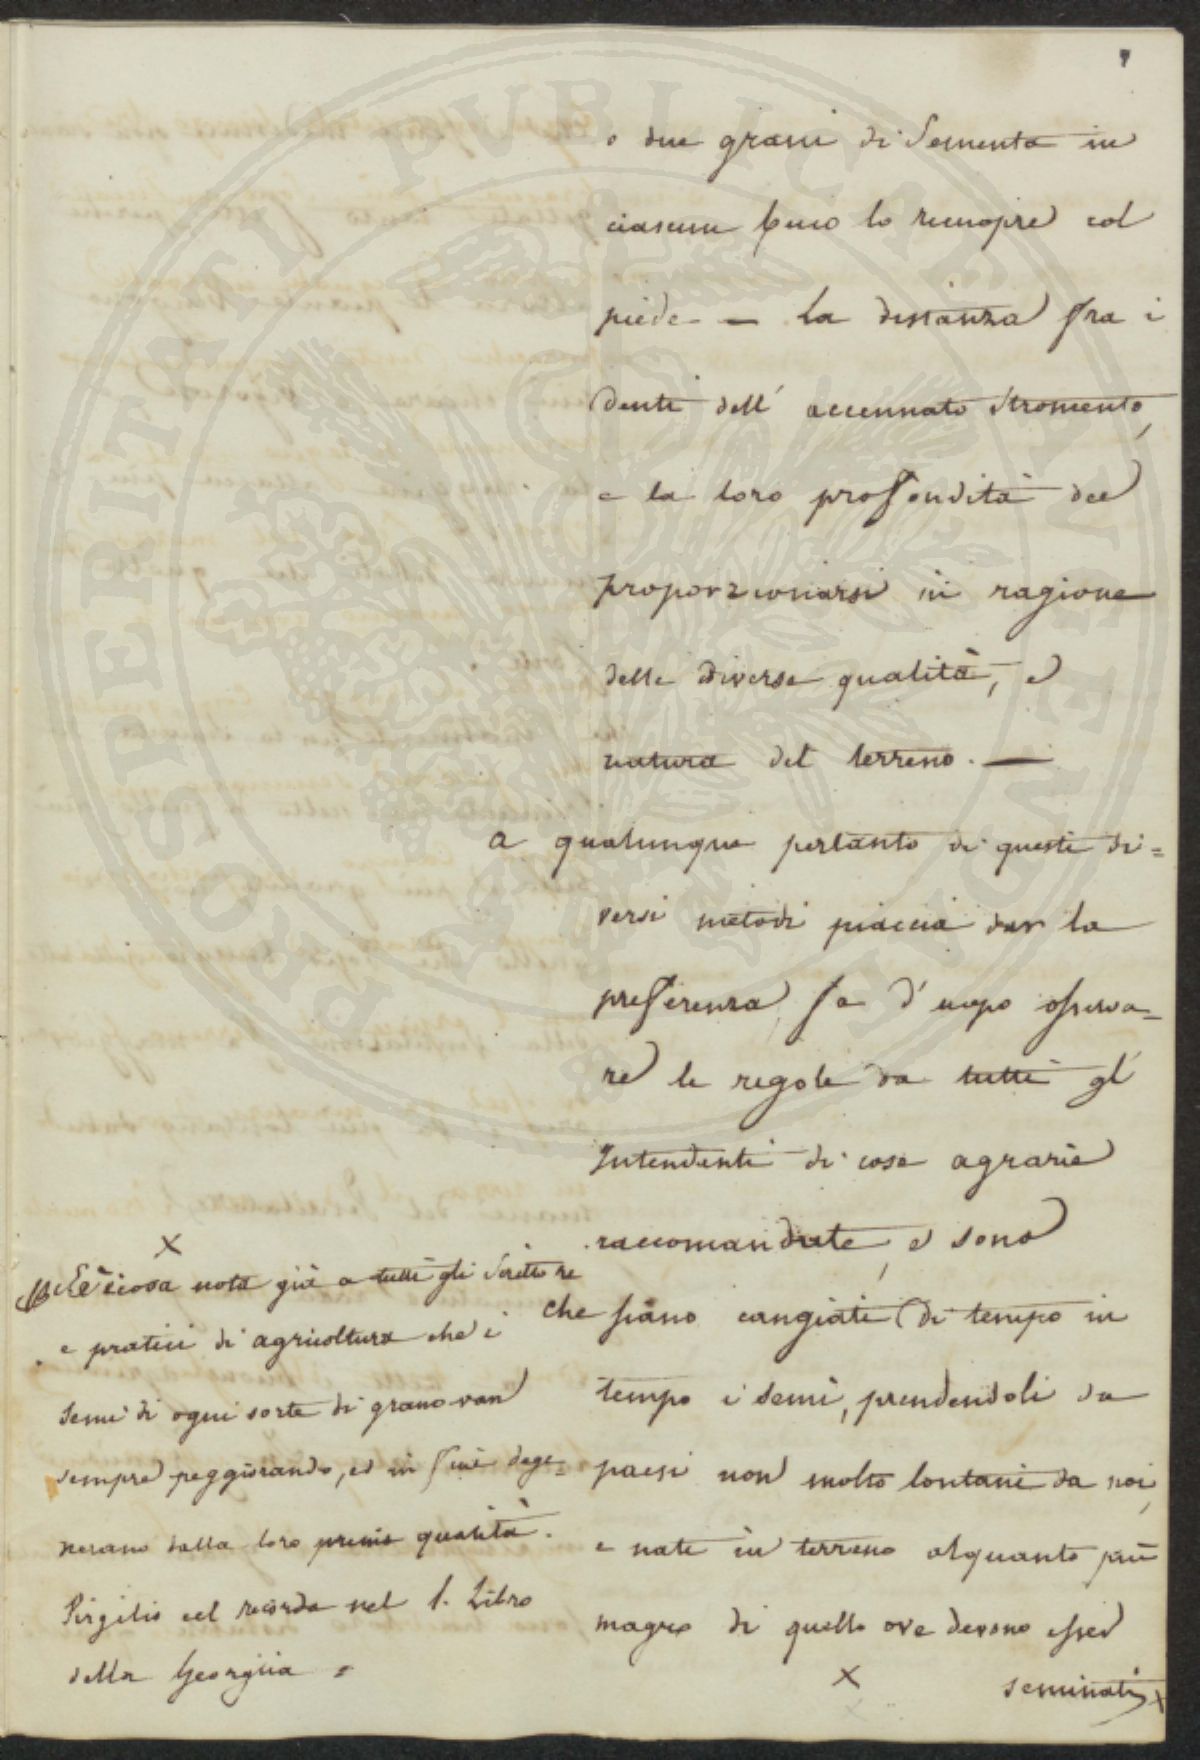 o due grani di Sementa in
ciascun buco lo ricuopre col
piede — La distanza fra i
denti dell' accennato stromento,
e la loro profondità dee
proporzionarsi in ragione
delle diverse qualità, e
natura del terreno. —
A qualunque pertanto di questi di=
versi metodi piaccia dar la
preferenza fa d'uopo osserva=
re le regole da tutti gl'
Intendenti di cose agrarie
raccomandate, e sono
che siano cangiati di tempo in
tempo i semi, prendendoli da
paesi non molto lontani da noi,
e nati in terreno alquanto più
magro di quello ove devono esser
X seminati X
X
È cosa nota già a tutti gli Scrittori
e pratici di agricoltura che i
semi di ogni sorte di grano van
sempre peggiorando, ed in fine dege=
nerano dalla loro prima qualità.
Virgilio cel ricorda nel 1. Libro
della Georgica =
PROSPERITATI PUBLICAE AUGENDAE